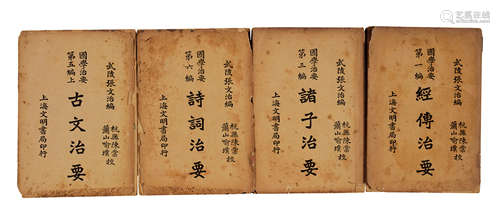 武陵張文治編
杭縣陳棠校
蕭山喻璞
國學治要
第一編
經傳治要
上海文明書局印行
武陵張文治編
杭縣陳棠校
蕭山喻璞
國學治要
第三編
諸子治要
上海文明書局印行
武陵張文治編
杭縣陳棠校
蕭山喻璞
國學治要
第六編
詩詞治要
上海文明書局印行
武陵張文治編
杭縣陳棠校
蕭山喻璞
國學治要
第五編上
古文治要
上海文明書局印行